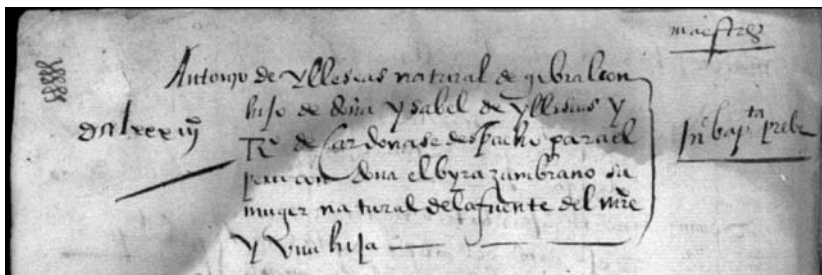 maestre
Antonyo de yllescas natural de gibraleon
hijo de doña ysabel de yllescas y
de Cardona se despacho para el
peru con doña elbyra zambrano su
muger natural de la fuente del mre
y una hija
Ju° bapta